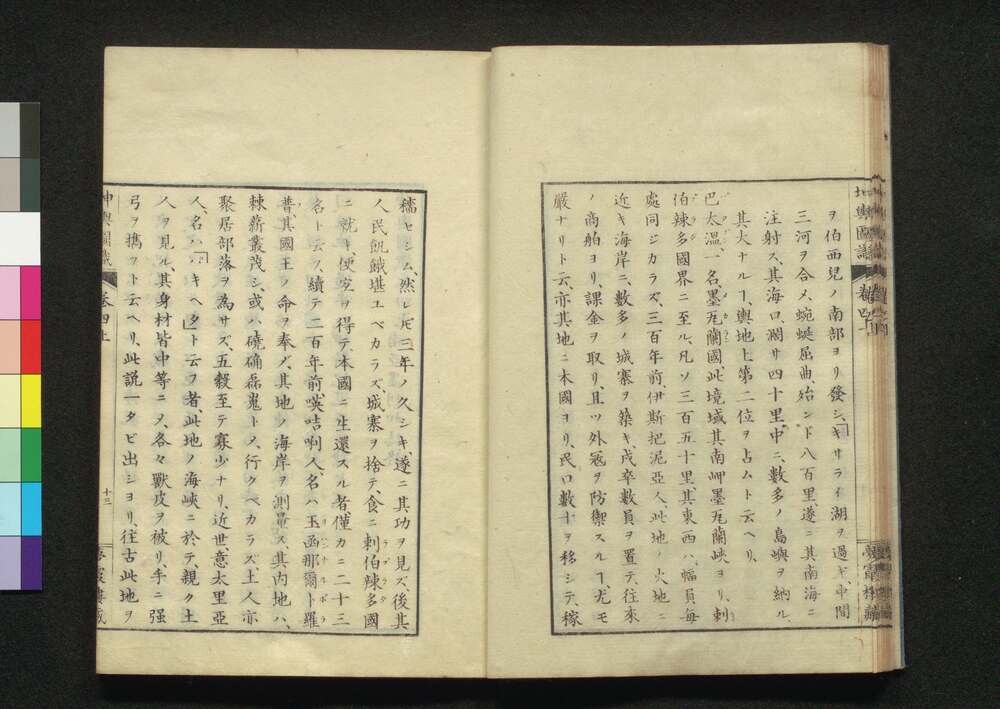 ヲ伯西児ノ南部ヨリ發シ、「キサライ湖ヲ過ギ、中間
三河ヲ合メ、蜿蜒屈曲、殆ンド八百里、遂ニ其南海ニ
注射ス、其海口濶サ四十里、中ニ數多ノ島嶼ヲ納ル、
其大ナルヿ、輿地上第二位ヲ占ムト云ヘリ、
巴太温、一名墨瓦蘭國、此境域、其南岬墨瓦蘭峽ヨリ、剌
伯辣多國界ニ至ル、凡ソ三百五十里、其東西ハ、幅員毎
處同ジカラズ、三百年前、伊斯把泥亞人、此地ノ火地ニ
近キ海岸ニ、數多ノ城寨ヲ築キ、戍卒數員ヲ置テ、往來
ノ商舶ヨリ、課金ヲ取リ、且ツ外冦ヲ防禦スルヿ、尤モ
嚴ナリト云、亦其地ニ本國ヨリ、民口數十ヲ移シテ、稼
穡セシム、然レ𪜈三年ノ久シキ、遂ニ其功ヲ見ズ、後其
人民飢餓堪エベカラズ、城寨ヲ捨テ、食ニ剌伯辣多國
ニ就キ、便宜ヲ得テ、本國ニ生還スル者、僅カニ二十三
名ト云フ、續テ二百年前、暎咭唎人、名ハ玉函那爾ト羅
普、其國王ノ命ヲ奉ジ、其地ノ海岸ヲ測量ス、其内地ハ、
棘薪叢茂シ、或ハ磽确磊嵬トメ、行クベカラズ、土人亦
聚居部落ヲ為サズ、五穀至テ寡少ナリ、近世、意太里亞
人、名ハ「ハキヘタ」ト云フ者、此地ノ海峽ニ於テ、親ク土
人ヲ見ル、其身材皆中等ニメ、各々獸皮ヲ被リ、手ニ强
弓ヲ携フト云ヘリ、此説一タビ出ショリ、往古此地ヲ
卷四上
十三